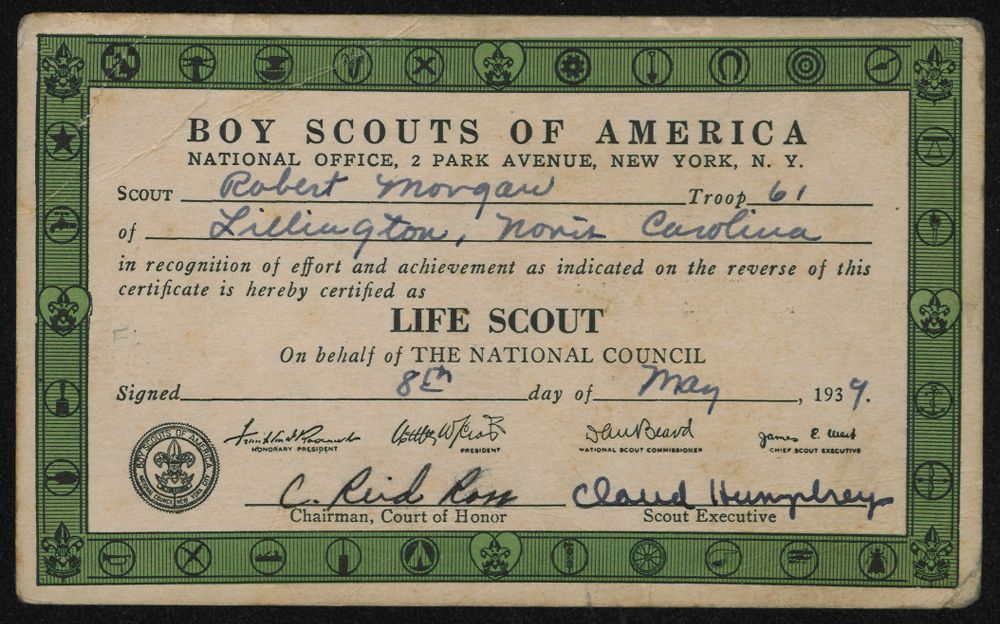 BOY SCOUTS OF AMERICA
NATIONAL OFFICE, 2 PARK AVENUE, NEW YORK, N. Y.
SCOUT Robert Morgan Troop 61
of Lillington, North Carolina
in recognition of effort and achievement as indicated on the reverse of this
certificate is hereby certified as
LIFE SCOUT
On behalf of THE NATIONAL COUNCIL
Signed 8th day of May, 1939.
Franklin D Roosevelt Walter W Head Dan Beard James E. West
HONORARY PRESIDENT PRESIDENT NATIONAL SCOUT COMMISSIONER CHIEF SCOUT EXECUTIVE
BOY SCOUTS OF AMERICA
NATIONAL COUNCIL NEW YORK CITY
C. Reid Ross Claud Humphrey
Chairman, Court of Honor Scout Executive